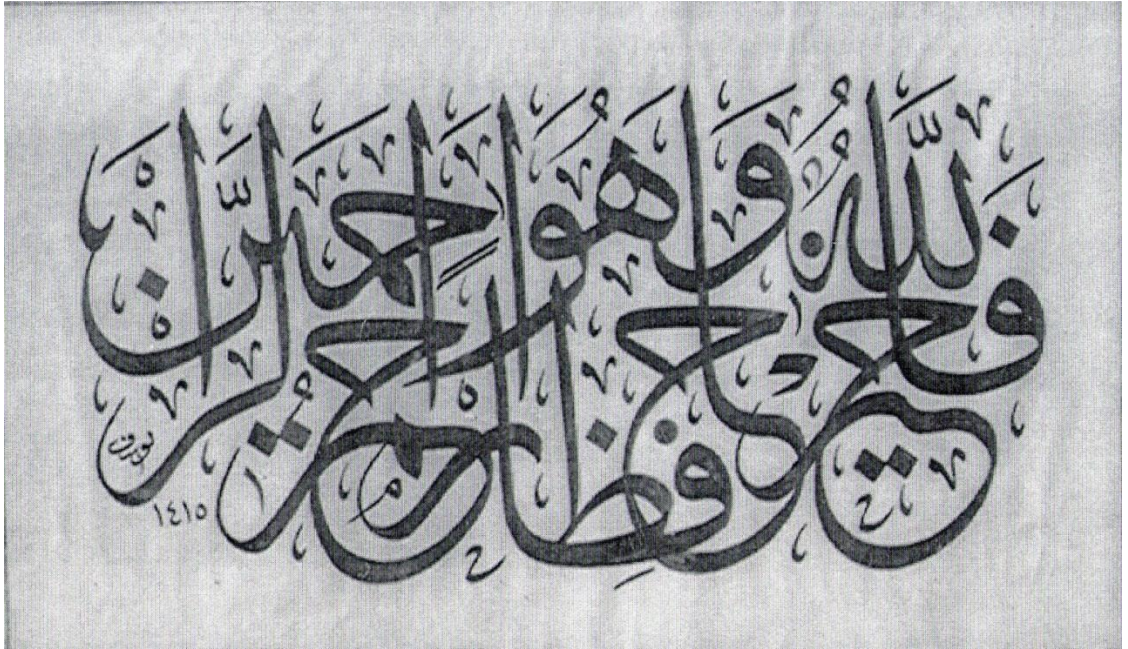 فالله خير حافظا وهو ارحم الراحمين
١٤١٥